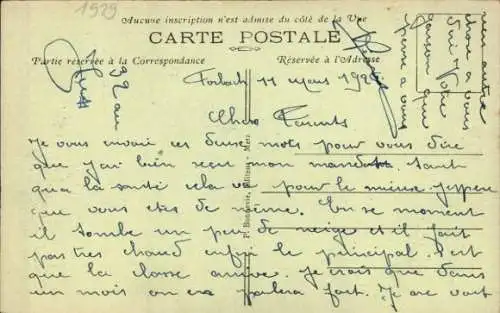 1929
Aucune inscription n'est admise du côté de la Vue
CARTE POSTALE
Partie réservée à la Correspondance
Réservée à l'Adresse
Forbach 11 mars 192
Chers Parents
Je vous envoie ces deux mots pour vous dire
que j'ai bien reçu mon mandat. Tant
qua la santé cela va pour le mieux. J'espere
que vous etes de même. En se moment
il tombe un peu de neige et il fait
pas tres chaud enfin le principal s'est
que la classe arrive. Je crois que dans
un mois on en parlera fort. Je
rien autre
chose a vous
dire Votre
garcon que
pense a vous
P. Bondevie, Éditeur - Metz